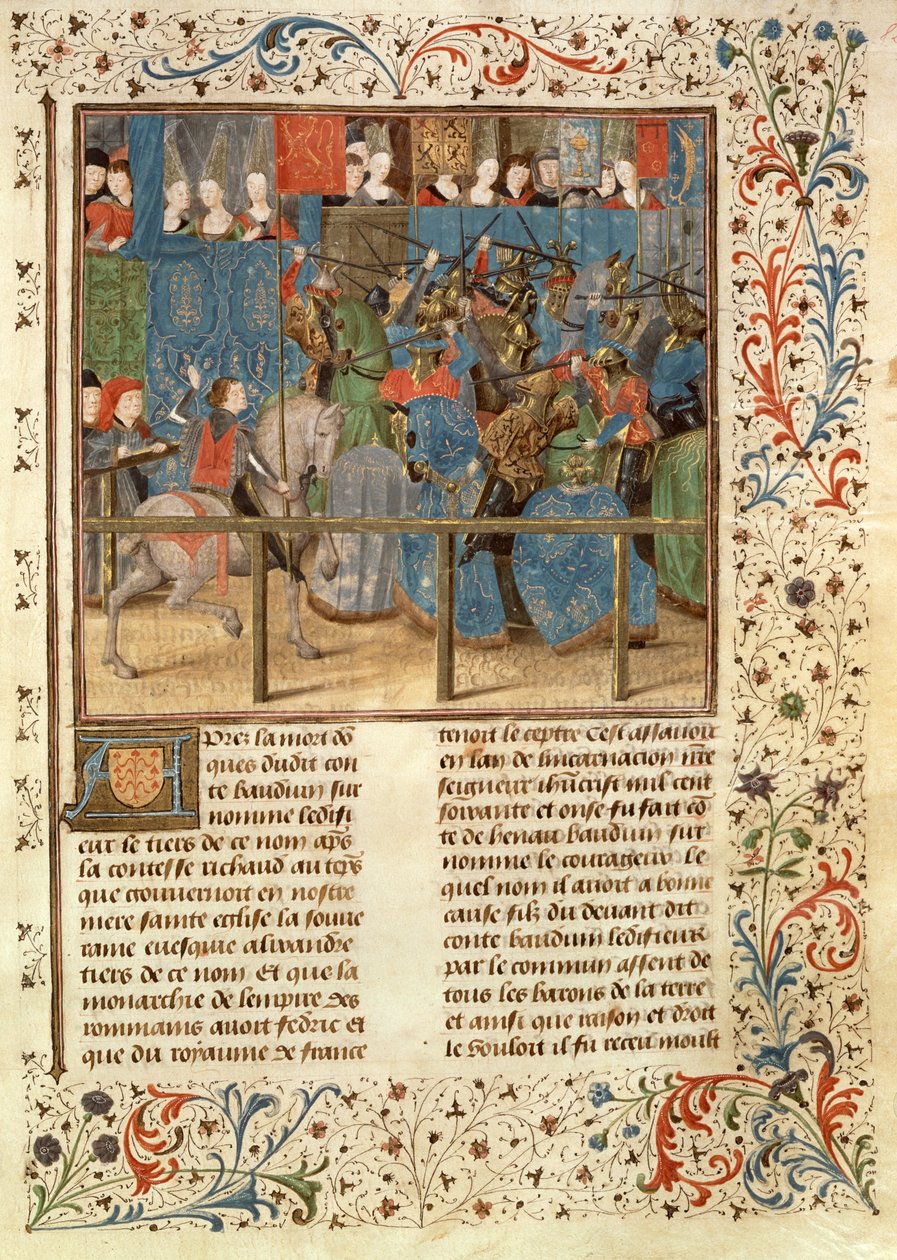 Aprez la mort dō
ques dudit con
te bauduin sur
nomme ledifi
eur le tiers de ce nom apṡ
la contesse richaud au tēps
que gouvernoit en nostre
mere sainte eglise la souve
raine evesque alixandre
tiers de ce nom Et que la
monarchie de lempire des
rommains avoit fedric Et
que du royaume de france
tenoit le ceptre Cest assavoir
en lan de lincarnacion nr̄e
seigneur ihūcrist mil cent
soixante et onse fu fait cō
te de henau bauduin sur
nomme le courageux le
quel nom il avoit a bonne
cause filz du devant dit
conte bauduin ledifieur
par le commun assent de
tous les barons de la terre
et ainsi que raison et droit
le vouloit il fu receu moult